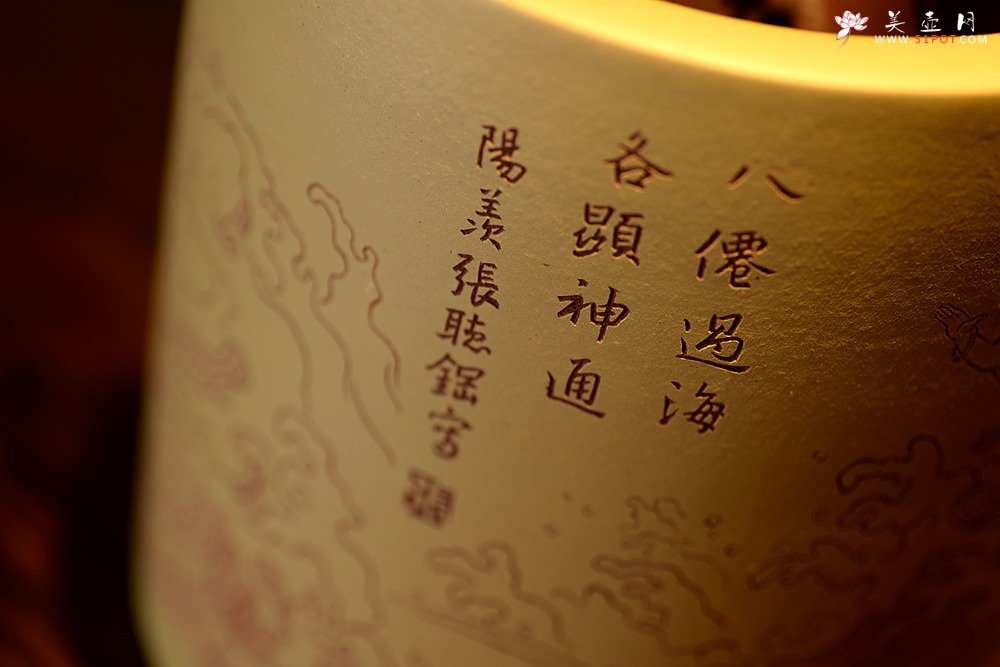 八僊過海
各顯神通
陽羨張聴鋸宮
美壶网
WWW.51POT.COM